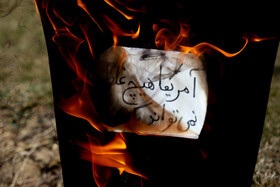 آمریکا هیچ غلطی
نمی‌تواند